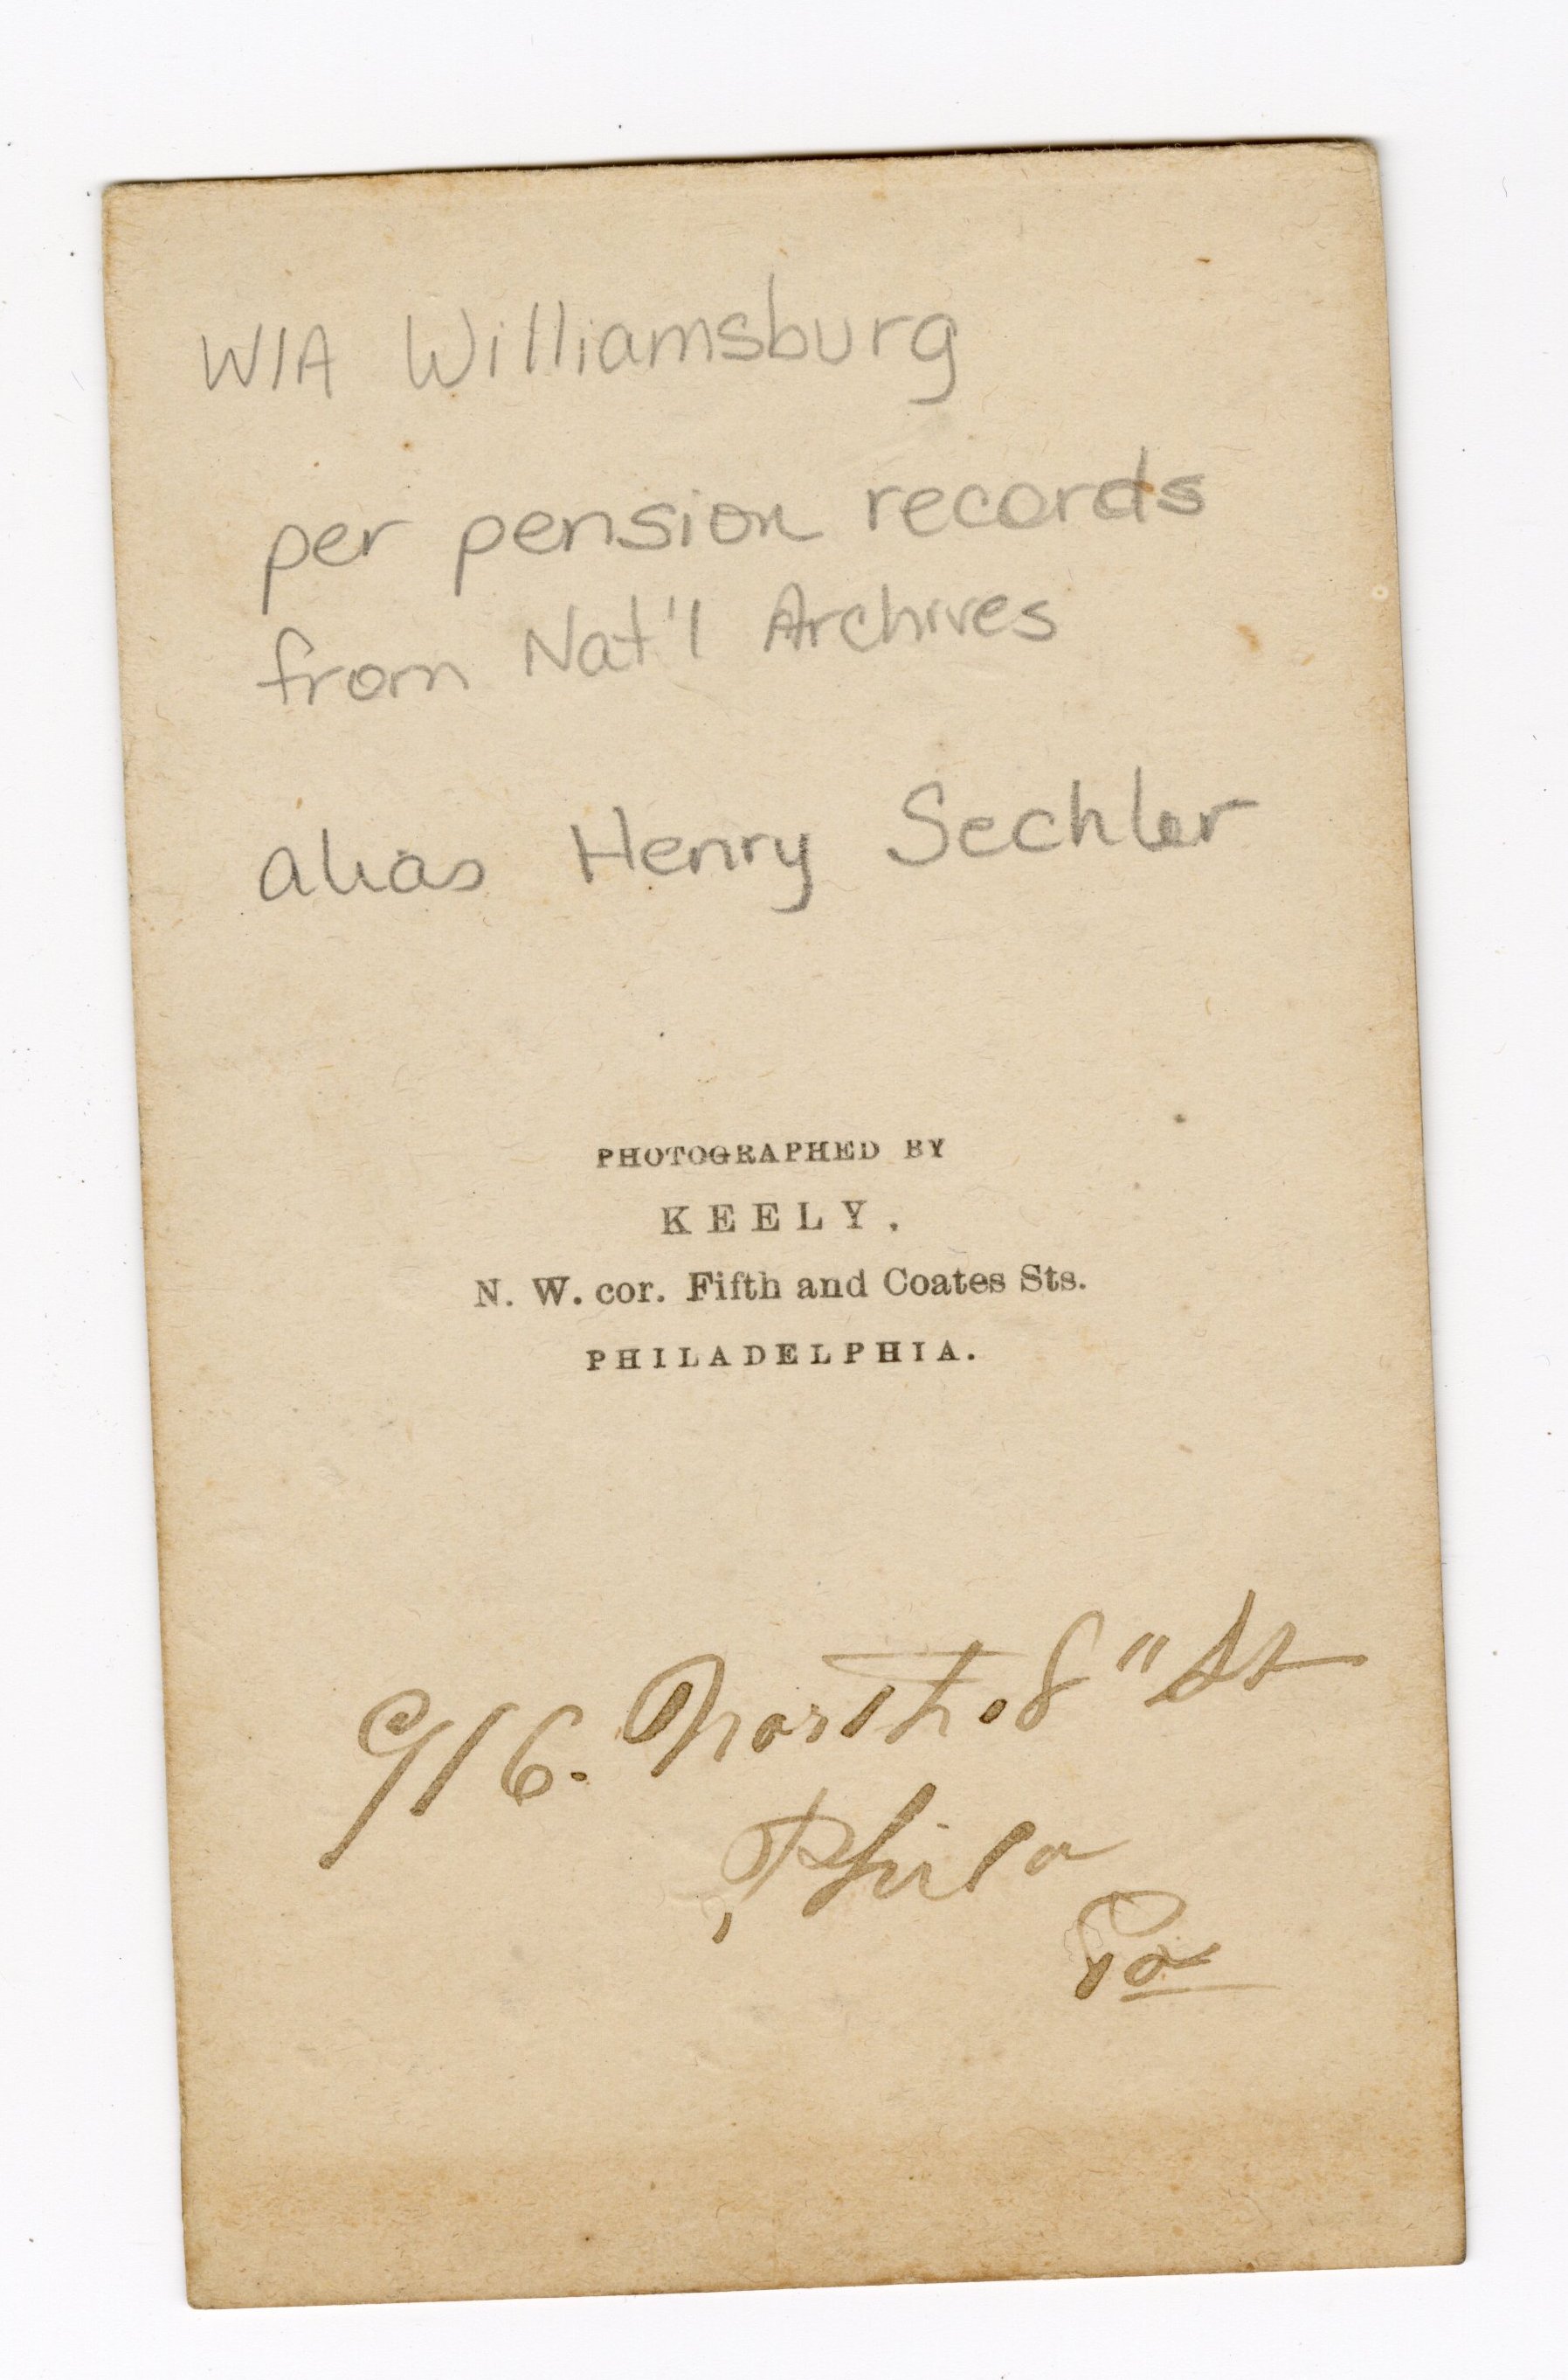 WIA Williamsburg
per pension records
from Nat'l Archives
alias Henry Sechler
PHOTOGRAPHED BY
KEELY.
N. W. cor. Fifth and Coates Sts.
PHILADELPHIA.
916. North. 8" St
Phila
Pa